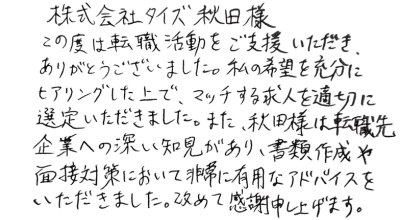 株式会社タイズ 秋田様
この度は転職活動をご支援いただき、
ありがとうございました。私の希望を充分に
ヒアリングした上で、マッチする求人を適切に
選定いただきました。また、秋田様は転職先
企業への深い知見があり、書類作成や
面接対策において非常に有用なアドバイスを
いただきました。改めて感謝申し上げます。